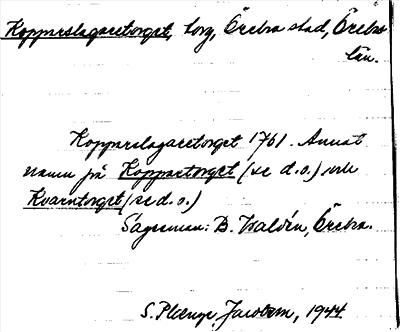 Kopparslagaretorget, torg, Örebro stad, Örebro
län.
Kopparslagaretorget 1761. Annat
namn på Koppartorget (se d.o.) och
Kvarntorget (se d.o.)
Sagesman: B. Waldén, Örebro.
S. Plænge Jacobson, 1944